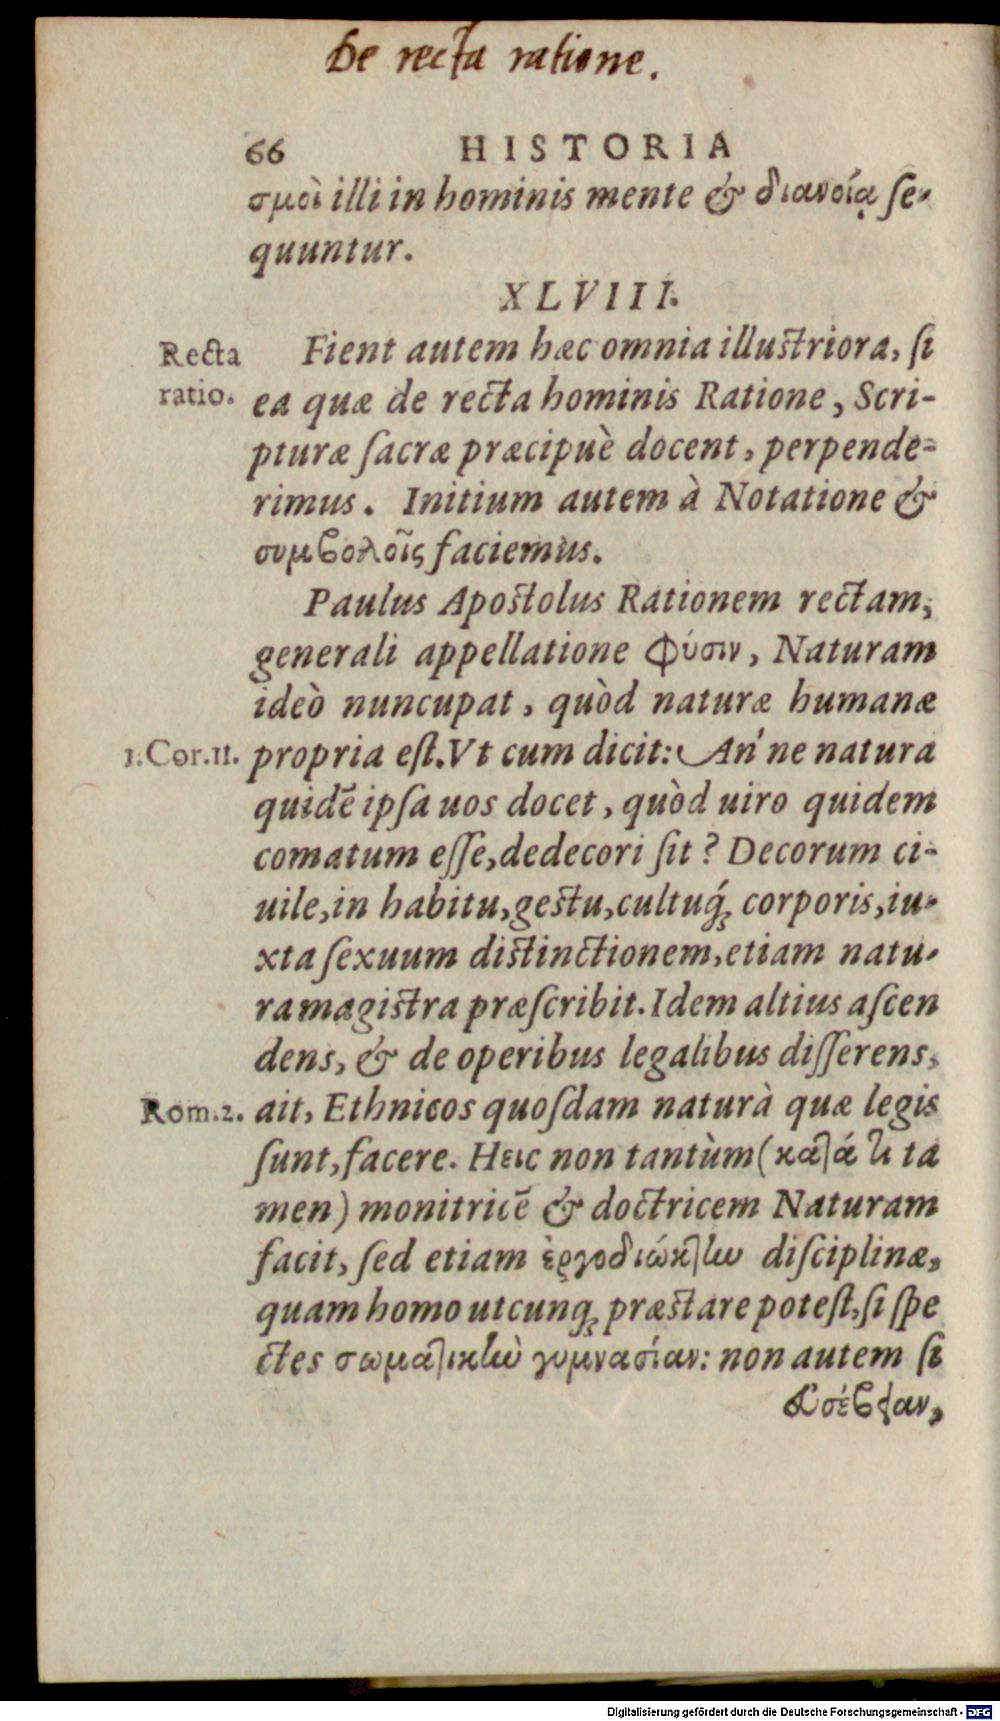 De recta ratione.
66 HISTORIA
σμοὶ illi in hominis mente & διανοίᾳ ſe-
quuntur.
XLVIII.
Recta
ratio.
Fient autem hæc omnia illuſtriora, ſi
ea quæ de recta hominis Ratione, Scri-
pturæ ſacræ præcipuè docent, perpende-
rimus. Initium autem à Notatione &
συμβολοῖς faciemus.
Paulus Apoſtolus Rationem rectam,
generali appellatione Φύσιν, Naturam
ideò nuncupat, quòd naturæ humanæ
1. Cor. 11. propria eſt. Vt cum dicit: An'ne natura
quidē ipſa uos docet, quòd uiro quidem
comatum eſſe, dedecori ſit? Decorum ci-
uile, in habitu, geſtu, cultuq́; corporis, iu-
xta ſexuum diſtinctionem, etiam natu-
ra magiſtra præſcribit. Idem altius aſcen
dens, & de operibus legalibus diſſerens,
Rom. 2. ait, Ethnicos quoſdam naturà quæ legis
ſunt, facere. Heic non tantùm (κατά τι ta
men) monitricē & doctricem Naturam
facit, ſed etiam ἐργοδιώκτην diſciplinæ,
quam homo utcunq; præſtare poteſt, ſi ſpe
ctes σωματικὴν γυμνασίαν: non autem ſi
εὐσέβειαν,
Digitalisierung gefördert durch die Deutsche Forschungsgemeinschaft - DFG